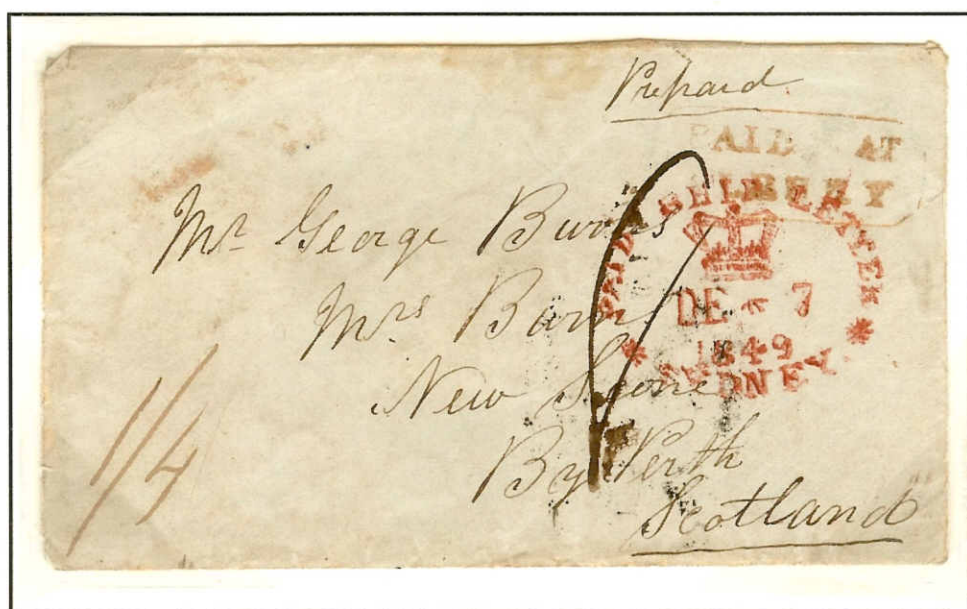 Prepaid
PAID AT
PAID SHIP LETTER
DE * 7
1849
* SYDNEY *
Mr George
Mrs
New Scone
By Perth
Scotland
1/4